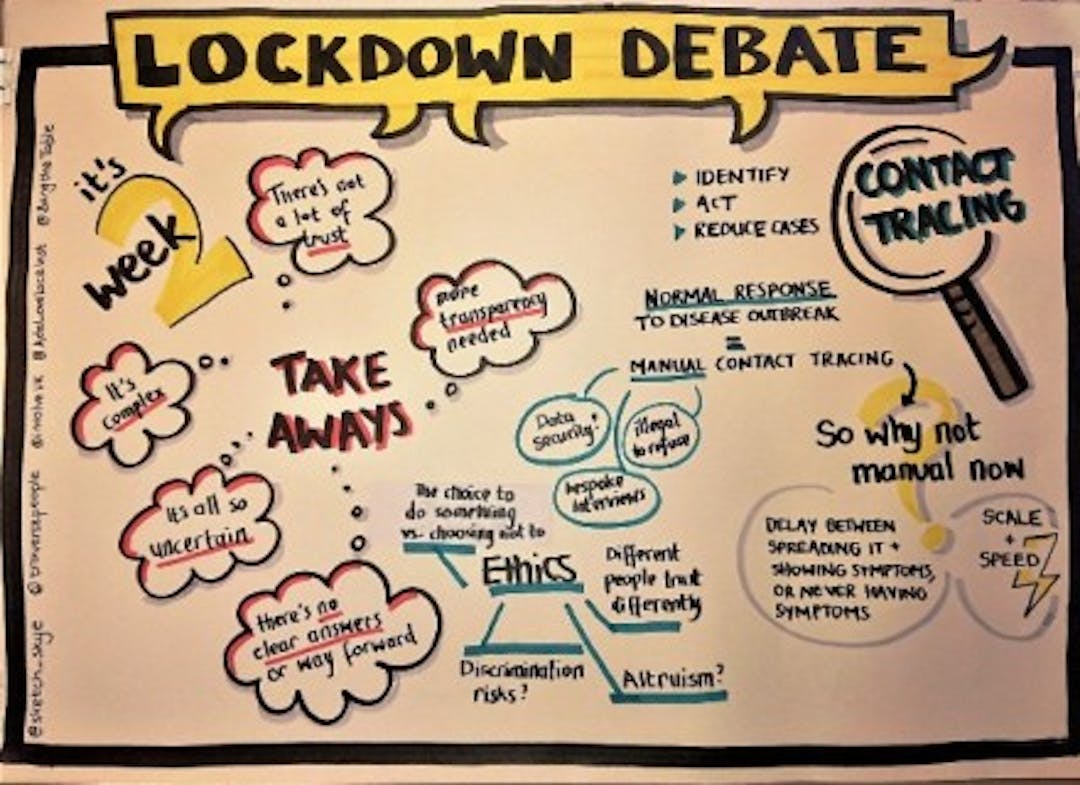 LOCKDOWN DEBATE
it's
week
2
There's not
a lot of
trust
more
transparency
needed
It's
complex
TAKE
AWAYS
Its all so
uncertain
there's no
clear answers
or way forward
IDENTIFY
ACT
REDUCE CASES
CONTACT
TRACING
NORMAL RESPONSE
TO DISEASE OUTBREAK
=
MANUAL CONTACT TRACING
Data
security?
illegal
to refuse
bespoke
interviews
So why not
manual now
?
DELAY BETWEEN
SPREADING IT +
SHOWING SYMPTOMS,
OR NEVER HAVING
SYMPTOMS
SCALE
+
SPEED
The choice to
do something
vs. choosing not to
Ethics
Different
people trust
differently
Discrimination
risks?
Altruism?
@sketch_skye @traversepeople @involveUK @AdaLovelaceInst